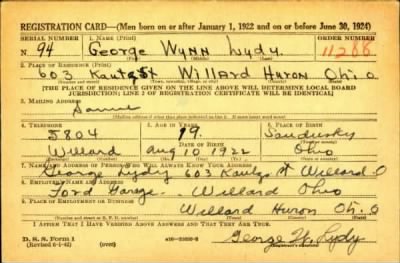 REGISTRATION CARD—(Men born on or after January 1, 1922 and on or before June 30, 1924)
SERIAL NUMBER 1. NAME (Print) ORDER NUMBER
N 94 George Wynn Lydy 11288
(First) (Middle) (Last)
2. PLACE OF RESIDENCE (Print)
603 Kautz St Willard Huron Ohio
(Number and street) (Town, township, village, or city) (County) (State)
[THE PLACE OF RESIDENCE GIVEN ON THE LINE ABOVE WILL DETERMINE LOCAL BOARD
JURISDICTION; LINE 2 OF REGISTRATION CERTIFICATE WILL BE IDENTICAL]
3. MAILING ADDRESS
Same
[Mailing address if other than place indicated on line 2. If same insert word same]
4. TELEPHONE 5. AGE IN YEARS 6. PLACE OF BIRTH
5804 19 Sandusky
DATE OF BIRTH
Willard Aug 10 1922 Ohio
7. NAME AND ADDRESS OF PERSON WHO WILL ALWAYS KNOW YOUR ADDRESS
George Lydy 603 Kautz St Willard O
8. EMPLOYER'S NAME AND ADDRESS
Ford Garage Willard Ohio
9. PLACE OF EMPLOYMENT OR BUSINESS
Willard Huron Oh. O
(Number and street or R. F. D. number) (Town) (County) (State)
I AFFIRM THAT I HAVE VERIFIED ABOVE ANSWERS AND THAT THEY ARE TRUE.
D. S. S. Form 1
(Revised 6-1-42) George W. Lydy